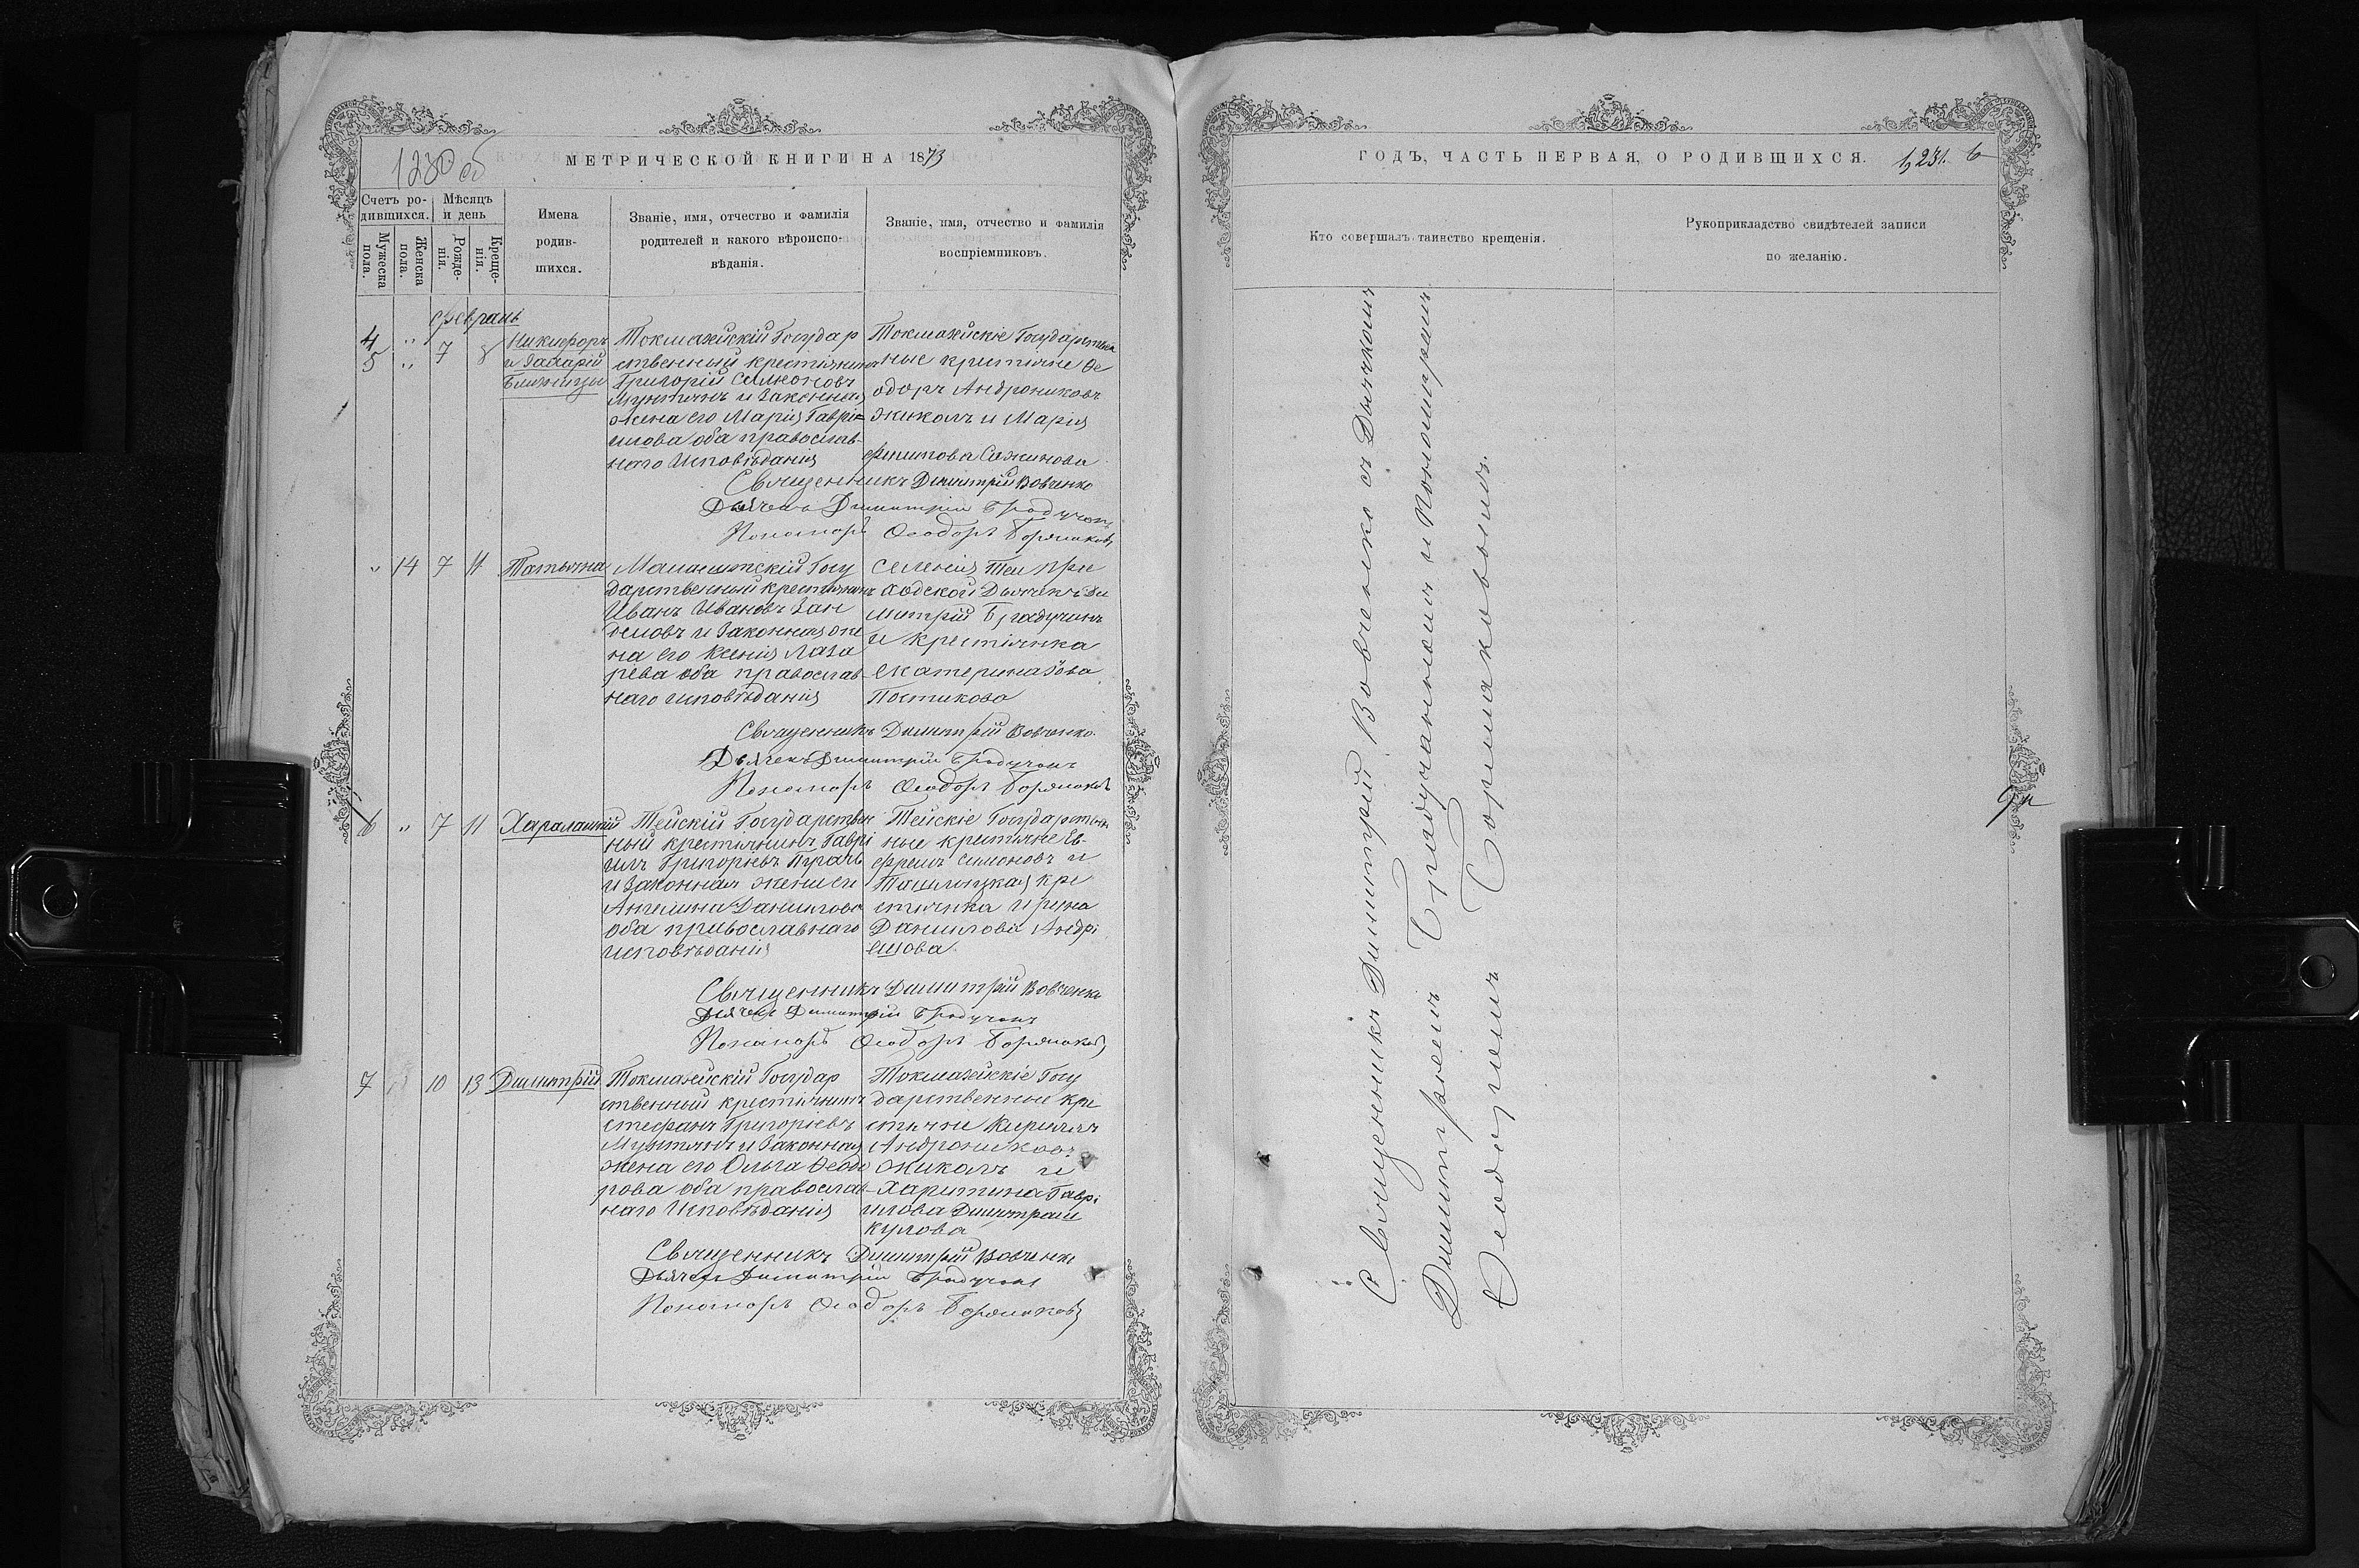 1230 об
МЕТРИЧЕСКОЙ КНИГИ НА 1873
Счетъ ро-
дившихся.
Мѣсяцъ
и день
Мужеска
пола.
Женска
пола.
Рожде-
нія.
Креще-
нія.
Имена
родив-
шихся.
Званіе, имя, отчество и фамилія
родителей и какого вѣроиспо-
вѣданія.
Званіе, имя, отчество и фамилія
воспріемниковъ.
Февраль
4 " 7 8
5 "
Никифоръ
и Захарій
близнецы
Токмазейскій Государ
ственный крестьянинъ
Григорій Симеоновъ
Мунтянъ и законная
жена его Марія Гаврі=
илова оба православ-
наго исповѣданія
Токмазейскіе Государствен
ные крестьяне Ѳе
одоръ Андрониковъ
Жикалъ и Марія
Филипова
Священникъ Димитрій Вовченко
Дьячекъ Димитрій Брадучанъ
Пономарь Ѳеодоръ
" 14 7 11 Татьяна
Государственный крестьянинъ
Иванъ Ивановъ
и законная же
на его Ксенія Лаза
рева оба православ-
наго исповѣданія
Селенія Теи при
ходской Дьячекъ Ди
митрій Брадучанъ
и крестьянка
Екатерина
Постикова
Священникъ Димитрій Вовченко.
Дьячекъ Димитрій Брадучанъ
Пономарь Ѳеодоръ
6 " 7 11 Харалампій
Тейскій Государствен
ный крестьянинъ Гаврі
илъ Григорьевъ
и законная жена его
Ангелина Данилова
оба православнаго
исповѣданія
Тейскіе Государствен
ные крестьяне Еѵ-
фремъ Симоновъ и
Ташлыцкая кре
стьянка Ирина
Данилова Андрі
ешова.
Священникъ Димитрій Вовченко
Дьячекъ Димитрій Брадучанъ
Пономарь Ѳеодоръ
7 10 13 Димитрій
Токмазейскій Государ
ственный крестьянинъ
Стефанъ Григоріевъ
Мунтянъ и законная
жена его Ольга Ѳеодо
рова оба православ-
наго исповѣданія
Токмазейскіе Госу
дарственные кре
стьяне Кириллъ
Андрониковъ
Жикалъ и
Харитина Гаврі
илова Димитраши
кулова
Священникъ Димитрій Вовченко
Дьячекъ Димитрій Брадучанъ
Пономарь Ѳеодоръ
ГОДЪ, ЧАСТЬ ПЕРВАЯ, О РОДИВШИХСЯ.
1,231.
Кто совершалъ таинство крещенія.
Рукоприкладство свидѣтелей записи
по желанію.
Священникъ Димитрій Вовченко съ Дьячкомъ
Димитріемъ Брадучаномъ и Пономаремъ
Ѳеодоромъ